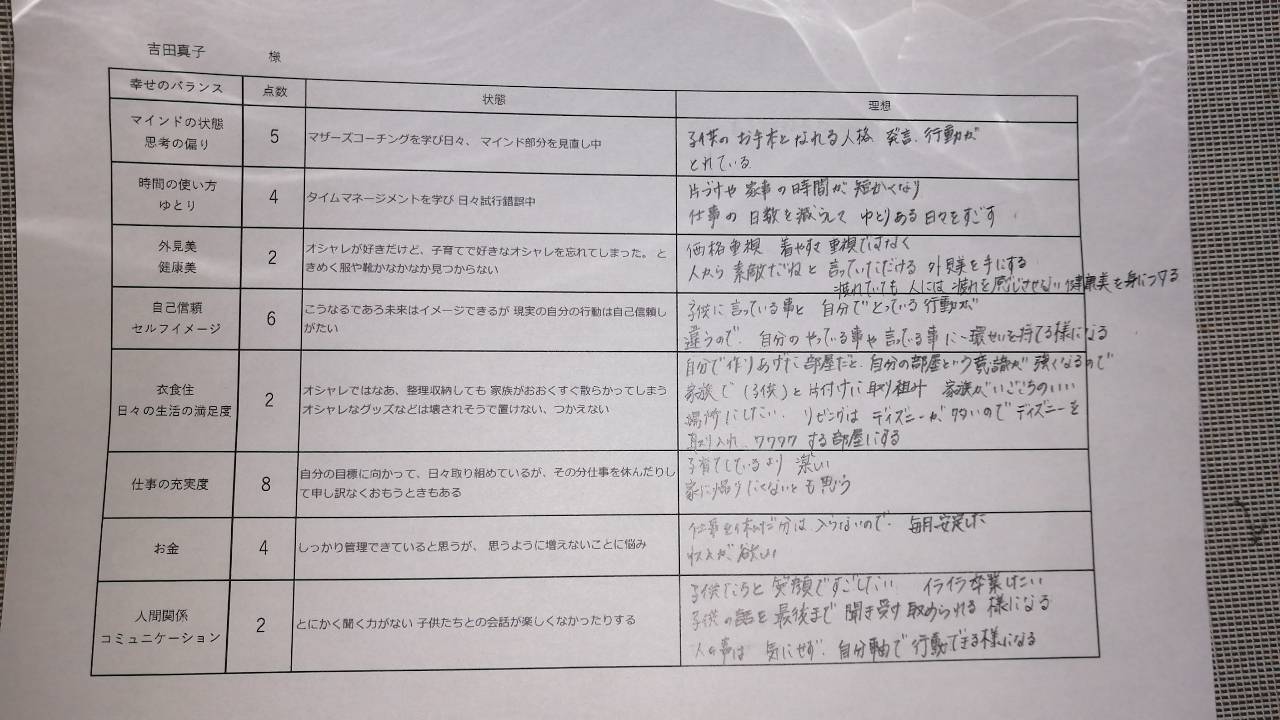 吉田真子 様
幸せのバランス 点数 状態 理想
マインドの状態
思考の偏り
5
マザーズコーチングを学び日々、 マインド部分を見直し中
子供の お手本となれる人格 発言、行動が
とれている
時間の使い方
ゆとり
4
タイムマネージメントを学び 日々試行錯誤中
片づけや 家事の時間が 短かくなり
仕事の 日数を減らして ゆとりある日々をすごす
外見美
健康美
2
オシャレが好きだけど、子育てで好きなオシャレを忘れてしまった。 と
きめく服や靴がなかなか見つからない
価格重視 着やすさ 重視ではなく
人から 素敵だねと 言っていただける 外見美を手にする
疲れていても 人には 疲れを感じさせない 健康美を身につける
自己信頼
セルフイメージ
6
こうなるである未来はイメージできるが 現実の自分の行動は自己信頼し
がたい
子供に言っている事と 自分でとっている行動が
違うので、 自分のやっている事や言っている事に一環せいを持てる様になる
衣食住
日々の生活の満足度
2
オシャレではなあ、整理収納しても 家族がおおくすぐ散らかってしまう
オシャレなグッズなどは壊されそうで置けない、つかえない
自分で作りあげた部屋だと、自分の部屋という意識が 強くなるので
家族で(子供)と片付けに取り組み 家族がいごこちのいい
場所にしたい、 リビングは ディズニーが多いのでディズニーを
取り入れ ワクワク する部屋にする
仕事の充実度
8
自分の目標に向かって、日々取り組めているが、その分仕事を休んだりし
て申し訳なくおもうときもある
子育てしているより 楽しい
家に帰りたくないとも思う
お金
4
しっかり管理できていると思うが、 思うように増えないことに悩み
仕事を休んだ分は 入らないので、 毎月安定した
収入が欲しい
人間関係
コミュニケーション
2
とにかく聞く力がない 子供たちとの会話が楽しくなかったりする
子供たちと 笑顔ですごしたい イライラ卒業したい
子供の話を最後まで 聞き受け取められる 様になる
人の事は 気にせず、自分軸で 行動できる様になる